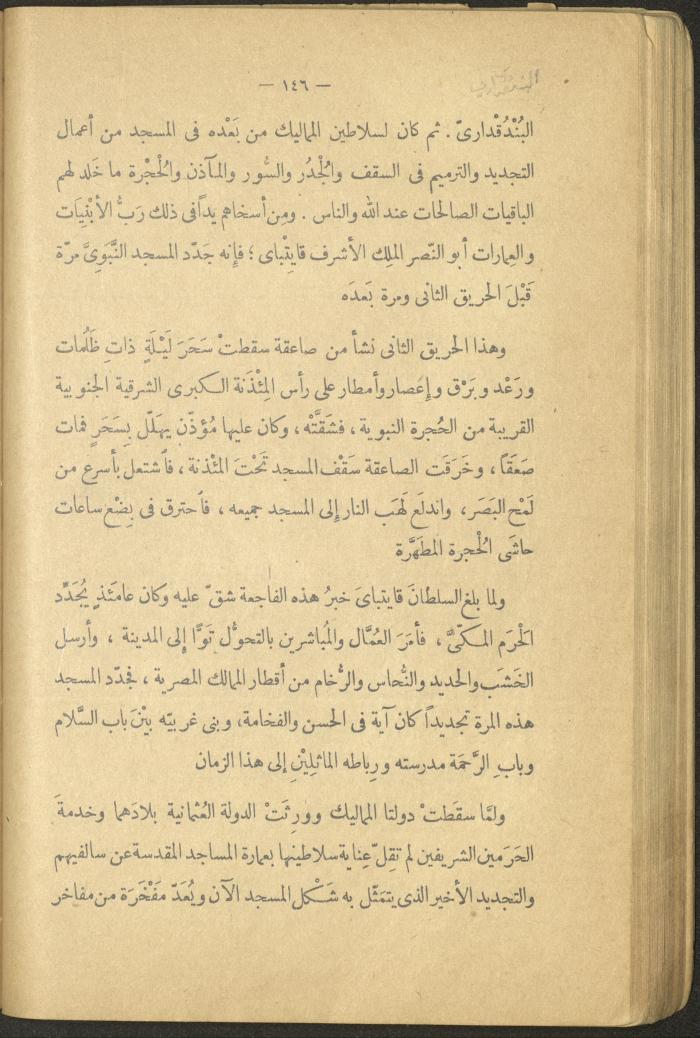 — ١٤٦ —
البُنْدُقْدارىّ . ثم كان لسلاطين المماليك من بَعْده فى المسجد من أعمال
التجديد والترميم فى السقف والجُدُر والسُّور والمآذن والحُجْرة ما خَلد لهم
الباقيات الصالحات عند الله والناس . ومن أسخاهم يداً فى ذلك رَبُّ الأبْنِيَات
والعِمارات أبو النّصر الملِك الأشرف قايتْباى ؛ فإنه جَدّد المسجد النَّبَوِىَّ مرّة
قَبْلَ الحريق الثانى ومرة بَعدَه
وهذا الحريق الثانى نشأ من صاعقة سقطتْ سَحَرَ لَيْـلَةٍ ذاتِ ظَلُمات
ورَعْد وبَرْق وإعصار وأمطار على رأس المِئْذَنة الـكبرى الشرقية الجنوبية
القريبة من الحُجرة النبوية ، فشَقَّتْه ، وكان عليها مُؤذّن يهَلّل بِسَحَرٍ فمات
صَعَقاً ، وخَرَقَت الصاعقة سَقْف المسجد تَحْتَ المئْذنة ، فٱشتعل بأسرع من
لَمْح البَصَر ، واندلَع لَهَب النار إلى المسجد جميعه ، فٱحترق فى بِضْع ساعات
حاشَى الحُجرة المطَهَّرة
ولما بلغ السلطانَ قايتباىَ خبرُ هذه الفاجعة شقّ عليه وكان عامَئذٍ يُجَدِّد
الحَرَم المـكّىَّ ، فأمَرَ العُمَّال والمُباشرين بالتحوُّل تَوًّا إلى المدينة ، وأرسل
الخَشَب والحديد والنُّحاس والرُّخام من أقطار الممالك المصرية ، فجدّد المسجد
هذه المرة تجديداً كان آية فى الحسن والفخامة ، وبنى غربيّه بيْنَ باب السَّلام
وبابِ الرَّحمَة مدرسته ورِباطه الماثلِيْنِ إلى هذا الزمان
ولمَّا سقَطَتْ دولتا المماليك وورِثَتْ الدولة العُثمانية بلادَهما وخدمةَ
الحَرَمين الشريفين لم تَقِلّ عِناية سلاطينها بعمارة المساجد المقدسة عن سالفيهم
والتجديد الأخير الذى يتمَثّل به شَـكْل المسجد الآن ويُعَدّ مَفْخَرَة من مفاخر